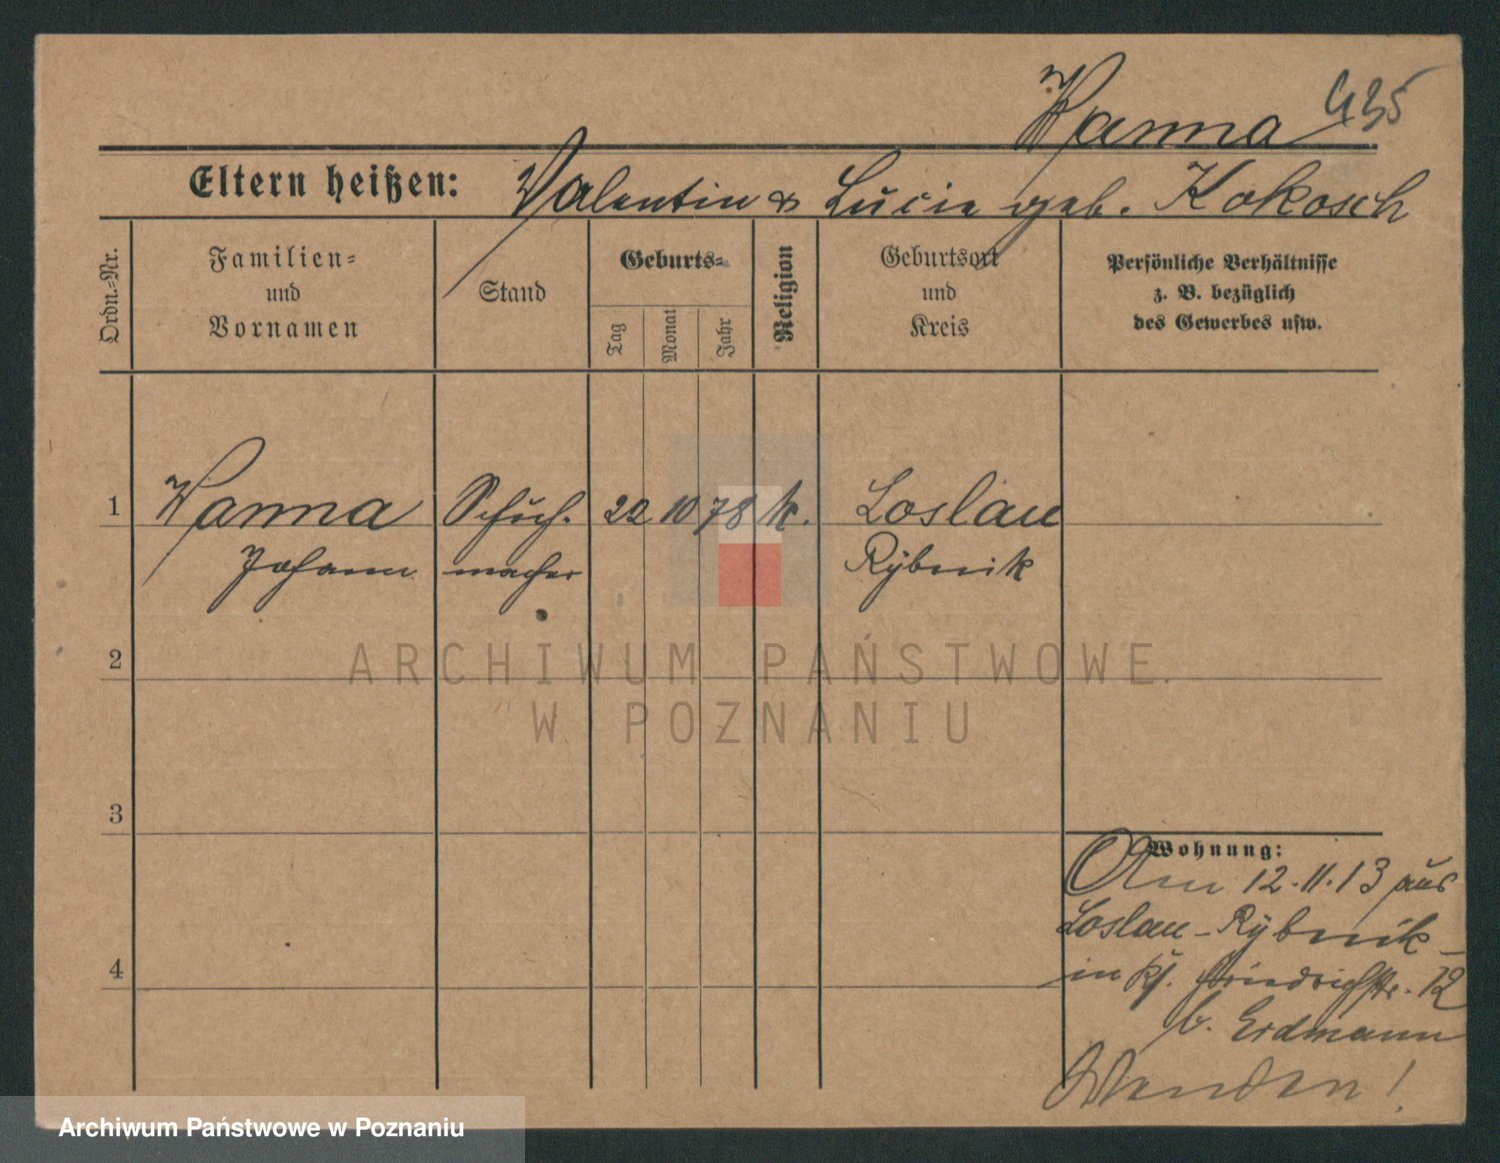 Wanna 435
Eltern heißen: Valentin & Lucie geb. Kokosch
Ordn.-Nr.
Familien-
und
Vornamen
Stand
Geburts-
Tag
Monat
Jahr
Religion
Geburtsort
und
Kreis
Persönliche Verhältnisse
z. B. bezüglich
des Gewerbes usw.
1 Wanna Schuh- 22 10 78 k. Loslau
Johann macher Rybnik
2
3
4
Wohnung:
Am 12.11.13 aus
Loslau-Rybnik-
in Friedrichstr. 12
b. Erdmann
Wenden!
ARCHIWUM PAŃSTWOWE
W POZNANIU
Archiwum Państwowe w Poznaniu